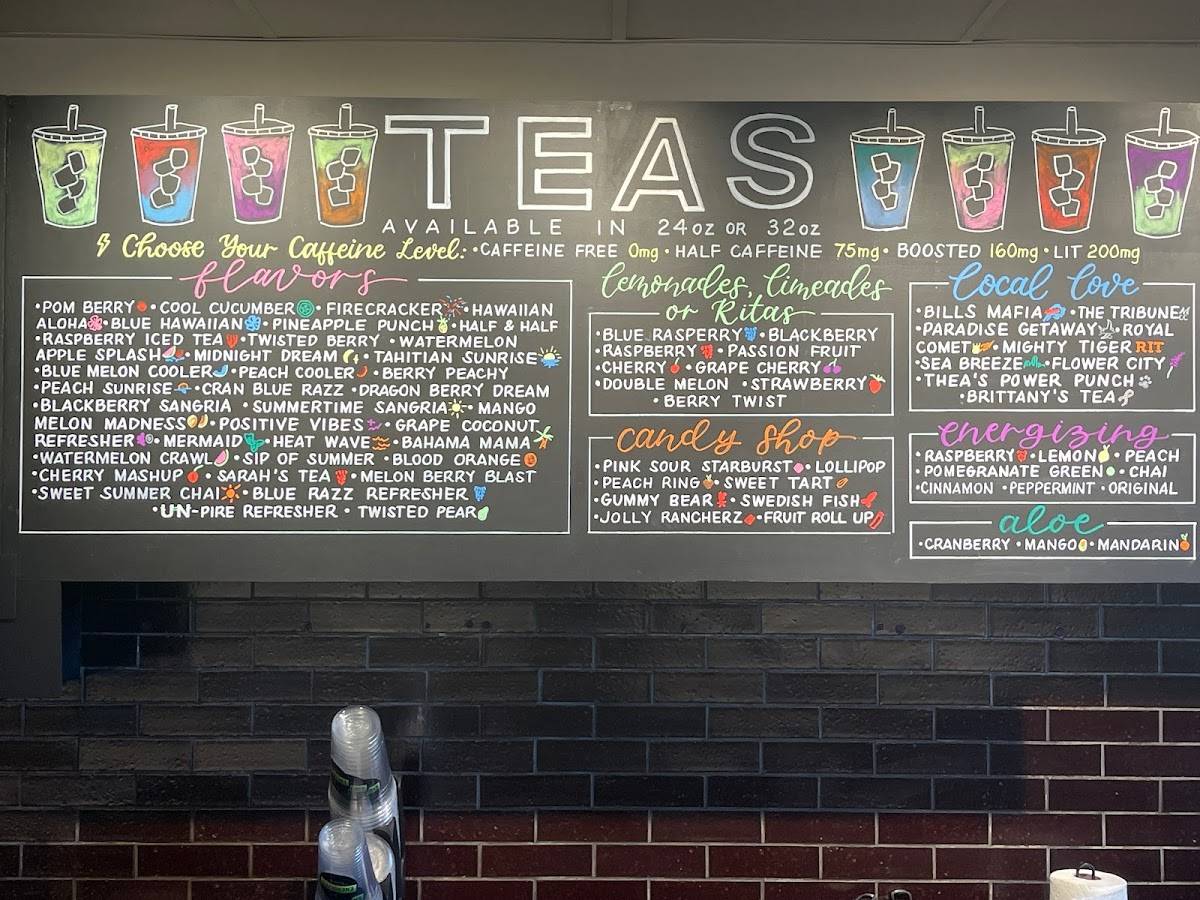 TEAS
AVAILABLE IN 24oz OR 32oz
Choose Your Caffeine Level: •CAFFEINE FREE 0mg • HALF CAFFEINE 75mg • BOOSTED 160mg • LIT 200mg
flavors
•POM BERRY • COOL CUCUMBER • FIRECRACKER • HAWAIIAN
ALOHA • BLUE HAWAIIAN • PINEAPPLE PUNCH • HALF & HALF
•RASPBERRY ICED TEA • TWISTED BERRY • WATERMELON
APPLE SPLASH • MIDNIGHT DREAM • TAHITIAN SUNRISE
•BLUE MELON COOLER • PEACH COOLER • BERRY PEACHY
•PEACH SUNRISE • CRAN BLUE RAZZ •DRAGON BERRY DREAM
•BLACKBERRY SANGRIA •SUMMERTIME SANGRIA • MANGO
MELON MADNESS • POSITIVE VIBES • GRAPE COCONUT
REFRESHER • MERMAID • HEAT WAVE • BAHAMA MAMA
•WATERMELON CRAWL • SIP OF SUMMER • BLOOD ORANGE
•CHERRY MASHUP • SARAH'S TEA • MELON BERRY BLAST
•SWEET SUMMER CHAI • BLUE RAZZ REFRESHER
•UN-PIRE REFRESHER • TWISTED PEAR
lemonades, limeades
or Ritas
•BLUE RASPERRY • BLACKBERRY
•RASPBERRY • PASSION FRUIT
•CHERRY • GRAPE CHERRY
•DOUBLE MELON • STRAWBERRY
•BERRY TWIST
candy shop
•PINK SOUR STARBURST • LOLLIPOP
•PEACH RING • SWEET TART
•GUMMY BEAR • SWEDISH FISH
•JOLLY RANCHERZ • FRUIT ROLL UP
local love
•BILLS MAFIA • THE TRIBUNE
•PARADISE GETAWAY • ROYAL
COMET • MIGHTY TIGER RIT
•SEA BREEZE • FLOWER CITY
•THEA'S POWER PUNCH
•BRITTANY'S TEA
energizing
•RASPBERRY • LEMON • PEACH
•POMEGRANATE GREEN • CHAI
•CINNAMON •PEPPERMINT •ORIGINAL
aloe
•CRANBERRY •MANGO • MANDARIN